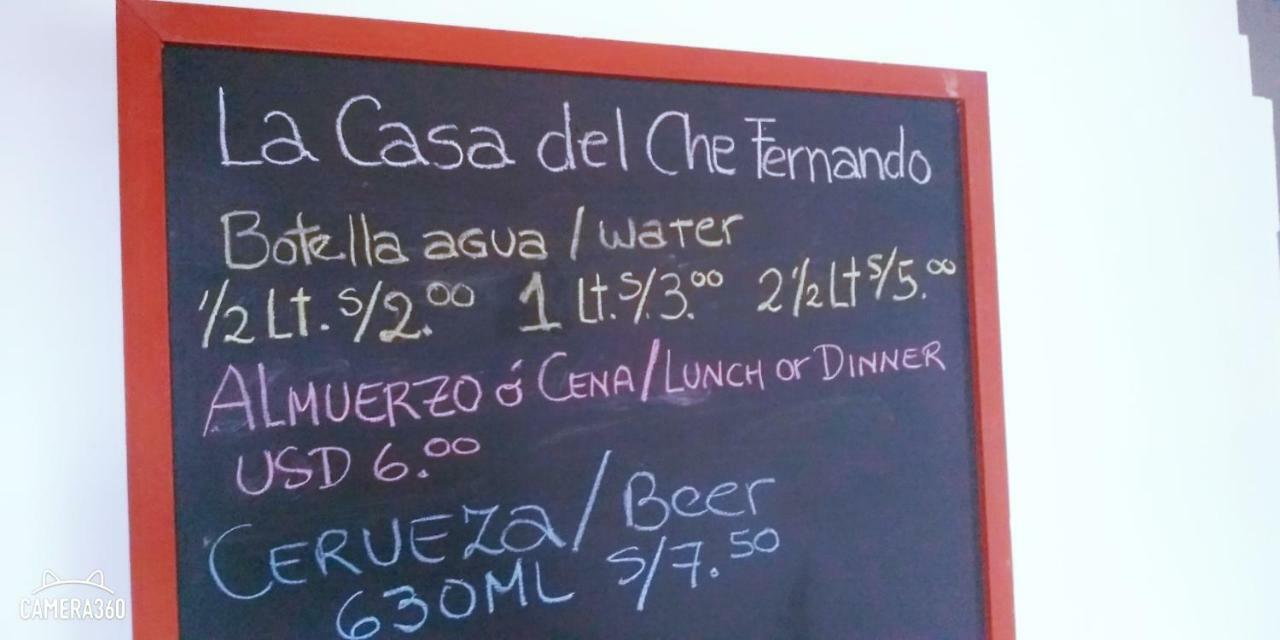 La Casa del Che Fernando
Botella agua / water
1/2 Lt. S/2.00 1 Lt. S/.3.00 2 1/2 Lt S/5.00
ALMUERZO ó CENA/LUNCH or DINNER
USD 6.00
CERVEZa/Beer
630ML S/7.50
CAMERA360